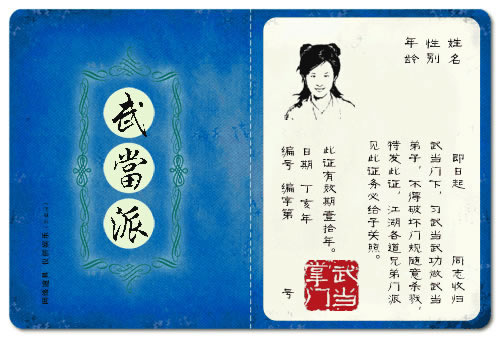 武當派
姓名
性别
年龄
即日起 同志收归
武当门下，习武当武功做武当
弟子，不得破坏门规随意杀戮，
特发此证，江湖各道兄弟门派
见此证务必给予关照。
此证有效期壹拾年。
日期 丁亥年
编号 编字第 号
武当
掌门